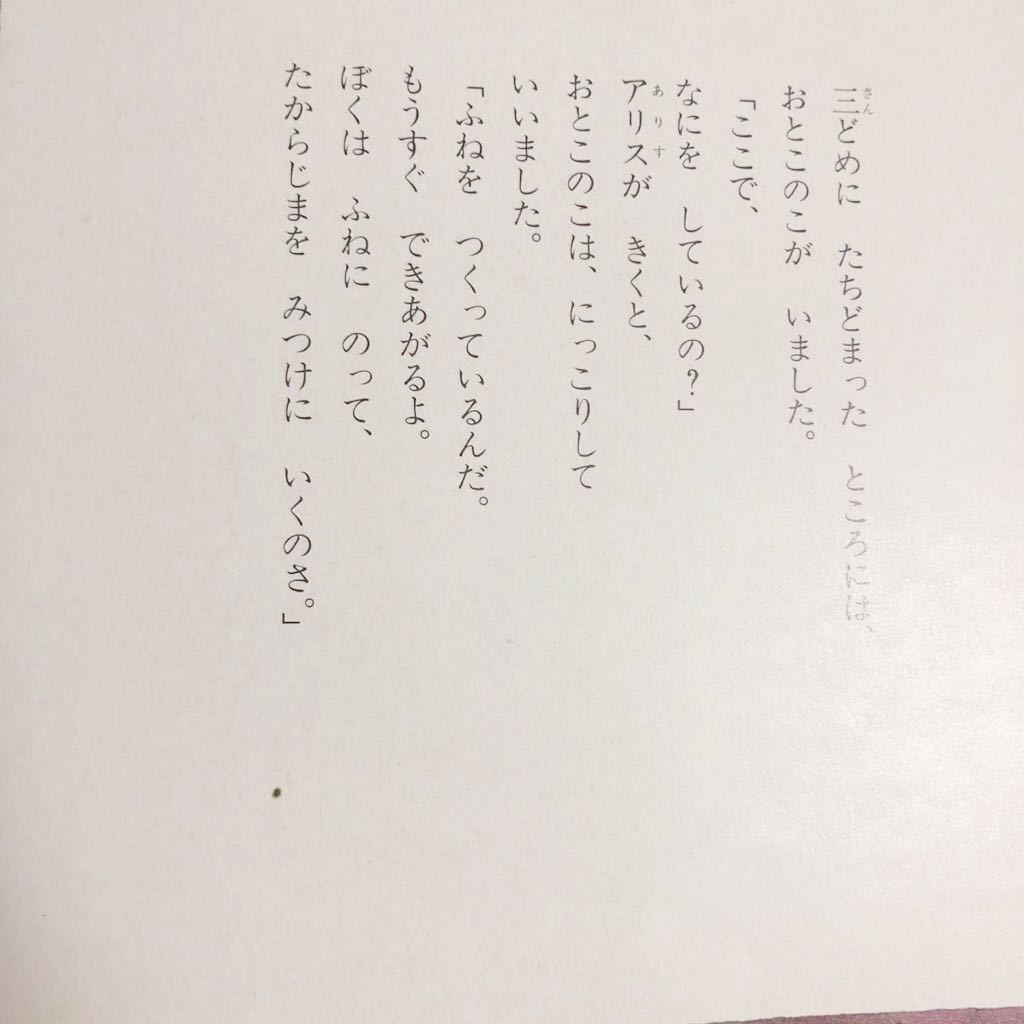 三どめに　たちどまった　ところには、
おとこのこが　いました。
「ここで、
なにを　しているの？」
アリスが　きくと、
おとこのこは、にっこりして
いいました。
「ふねを　つくっているんだ。
もうすぐ　できあがるよ。
ぼくは　ふねに　のって、
たからじまを　みつけに　いくのさ。」